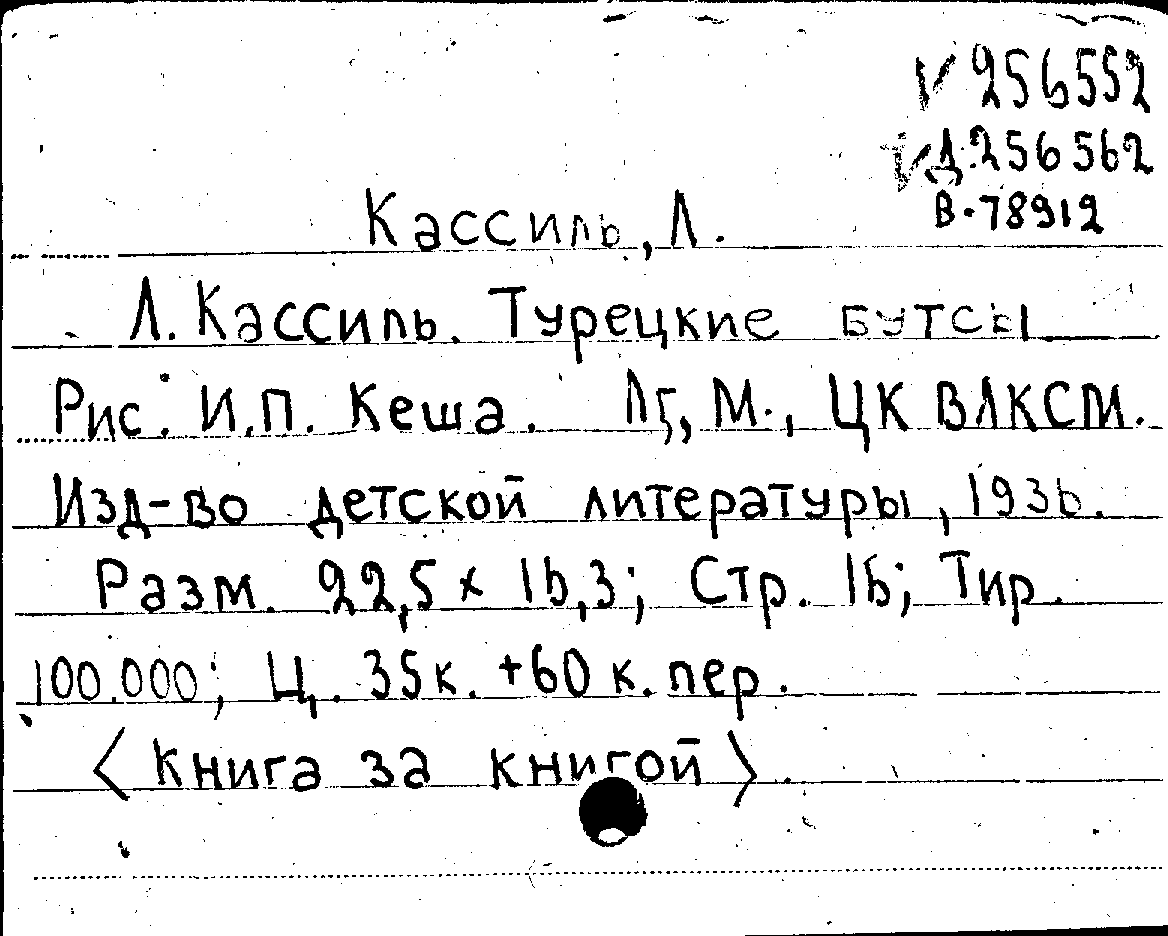 V 256552
V Д.256562
В.78912
Кассиль, Л.
Л. Кассиль. Турецкие бутсы
Рис. И.П. Кеша. Лг, М., ЦК ВЛКСМ.
Изд-во детской литературы, 1936.
Разм. 22,5 х 16,3; Стр. 16; Тир.
100.000; Ц. 35к. +60 к. пер.
<Книга за книгой>.